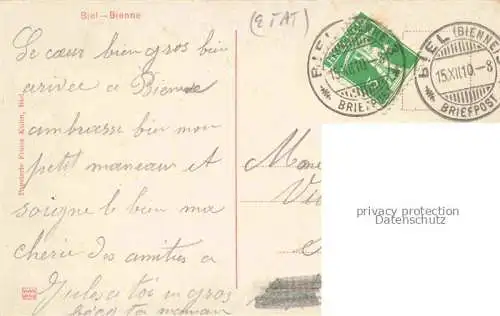 Biel—Bienne
(ETAT)
BIEL (BIENNE)
15.XII.10.–8
BRIEFPOST
BIEL (BIENNE)
15.XII.10.–8
BRIEFPOST
Le cœur bien gros bien
arivée a Bienne
ambrasse bien mon
petit maneau et
soigne le bien ma
cherie des amities a
Jules a toi un gros
toi maman
Papeterie Franz Kuhn, Biel
privacy protection
Datenschutz